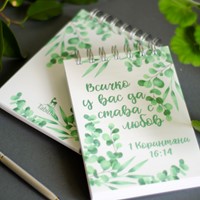 Всичко
у вас да
става с
любов
1 Коринтяни
16:14